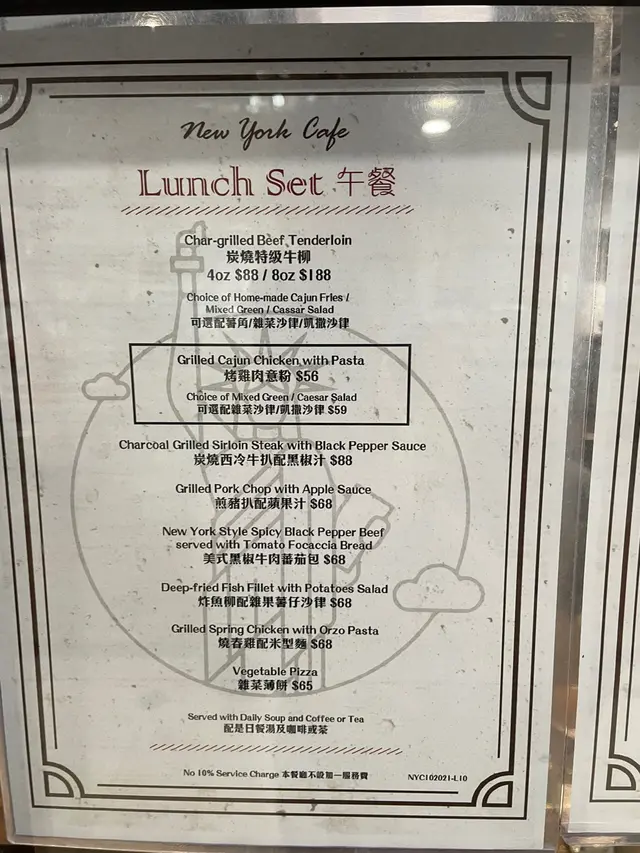 New York Cafe
Lunch Set 午餐
Char-grilled Beef Tenderloin
炭燒特級牛柳
4oz $88 / 8oz $188
Choice of Home-made Cajun Fries /
Mixed Green / Cassar Salad
可選配薯角/雜菜沙律/凱撒沙律
Grilled Cajun Chicken with Pasta
烤雞肉意粉 $56
Choice of Mixed Green / Caesar Salad
可選配雜菜沙律/凱撒沙律 $59
Charcoal Grilled Sirloin Steak with Black Pepper Sauce
炭燒西冷牛扒配黑椒汁 $88
Grilled Pork Chop with Apple Sauce
煎豬扒配蘋果汁 $68
New York Style Spicy Black Pepper Beef
served with Tomato Focaccia Bread
美式黑椒牛肉蕃茄包 $68
Deep-fried Fish Fillet with Potatoes Salad
炸魚柳配雜果薯仔沙律 $68
Grilled Spring Chicken with Orzo Pasta
燒春雞配米型麵 $68
Vegetable Pizza
雜菜薄餅 $65
Served with Daily Soup and Coffee or Tea
配是日餐湯及咖啡或茶
No 10% Service Charge 本餐廳不設加一服務費
NYC102021-L10